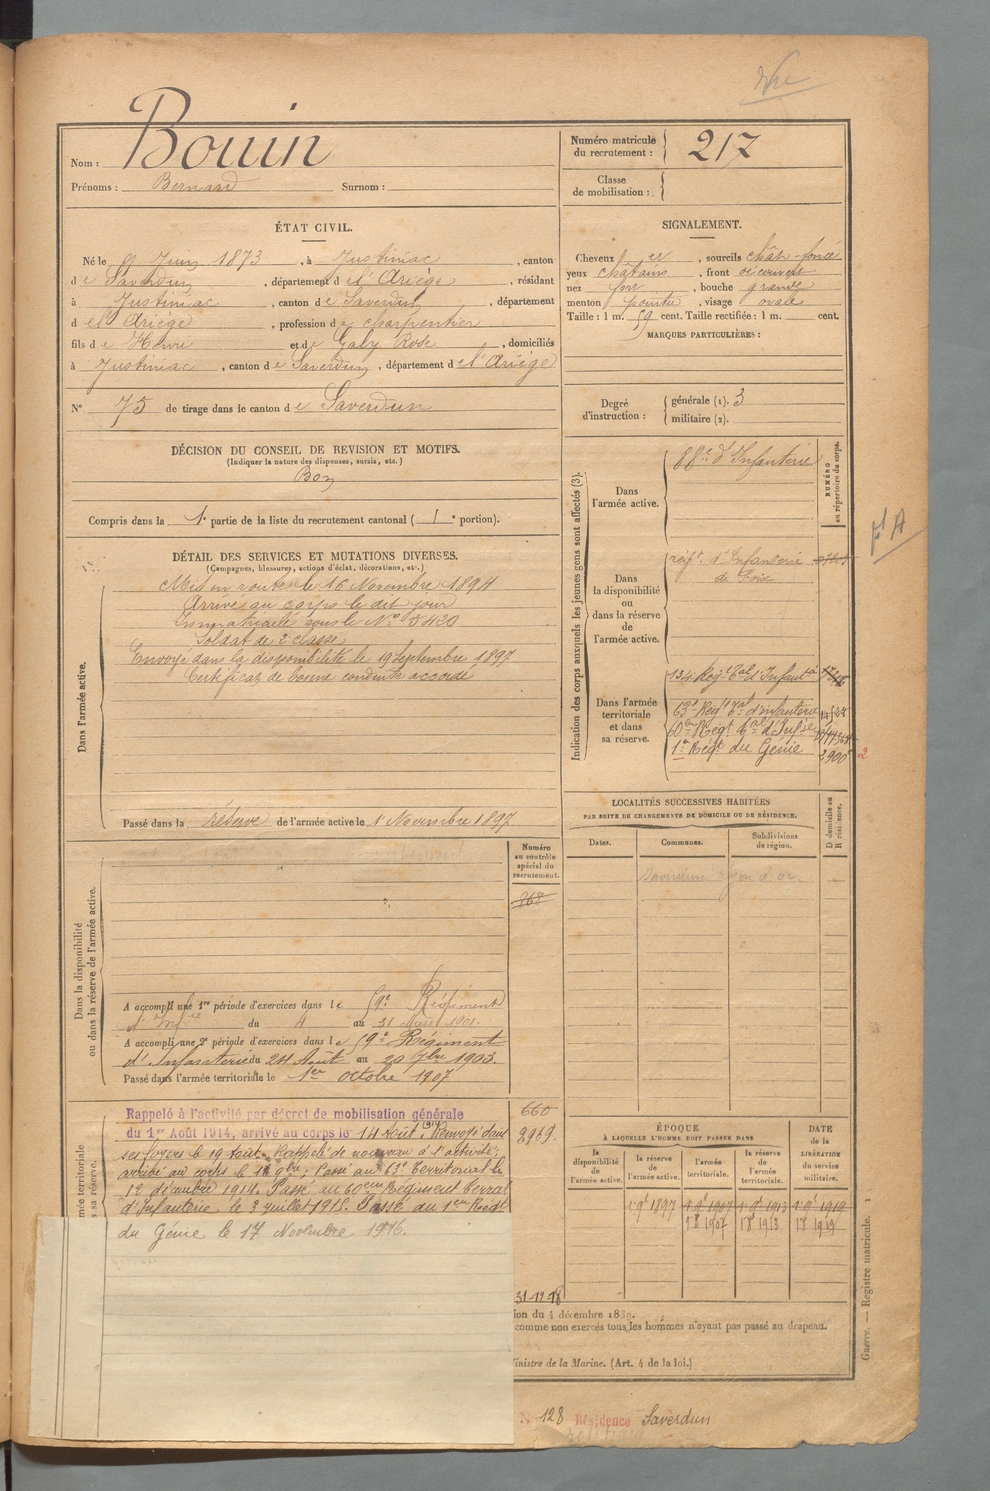 Nom : Bouin
Prénoms : Bernard Surnom :
Numéro matricule du recrutement : 217
Classe de mobilisation :
ÉTAT CIVIL.
Né le Juin 1873, à Justiniac, canton
de Saverdun, département de l'Ariège, résidant
à Justiniac, canton de Saverdun, département
de l'Ariège, profession de charpentier
fils de Henri et de Gaby Rose, domiciliés
à Justiniac, canton de Saverdun, département de l'Ariège
N° 75 de tirage dans le canton de Saverdun
SIGNALEMENT.
Cheveux, sourcils chât. foncé
yeux châtains, front découvert
nez, bouche grande
menton pointu, visage ovale
Taille : 1 m. 59 cent. Taille rectifiée : 1 m. cent.
MARQUES PARTICULIÈRES :
Degré d'instruction : générale (1). 3
militaire (2).
DÉCISION DU CONSEIL DE REVISION ET MOTIFS.
(Indiquer la nature des dispenses, sursis, etc.)
Bon
Compris dans la 1e partie de la liste du recrutement cantonal (1e portion).
DÉTAIL DES SERVICES ET MUTATIONS DIVERSES.
(Campagnes, blessures, actions d'éclat, décorations, etc.)
Dans l'armée active.
Mis en route le 16 Novembre 1894
Arrivé au corps le dit jour
Immatriculé sous le N° 5420
Soldat de 2e classe
Envoyé dans la disponibilité le 19 Septembre 1897
Certificat de bonne conduite accordé
Passé dans la réserve de l'armée active le 1 Novembre 1897
Indication des corps auxquels les jeunes gens sont affectés (3).
NUMÉRO au répertoire du corps.
Dans l'armée active.
88e d'Infanterie
Dans la disponibilité ou dans la réserve de l'armée active.
régt. d'Infanterie
de Foix
Dans l'armée territoriale et dans sa réserve.
134 Régt Tal d'Infanterie
63e Régt Tal d'infanterie
60em Régt Tal d'Infie
1er Régt du Génie 2900
2
LOCALITÉS SUCCESSIVES HABITÉES
PAR SUITE DE CHANGEMENTS DE DOMICILE OU DE RÉSIDENCE.
Dates. Communes. Subdivisions de région. D domicile ou R résidence.
Dans la disponibilité ou dans la réserve de l'armée active.
Numéro au contrôle spécial du recrutement.
868
A accompli une 1re période d'exercices dans le 59e Régiment
d'Infie du 4 au 31 Mars 1901.
A accompli une 2e période d'exercices dans le 59e Régiment
d'Infanterie du 24 Août au 20 7bre 1903.
Passé dans l'armée territoriale le 1er octobre 1907
660
2969
Rappelé à l'activité par décret de mobilisation générale
du 1er Août 1914, arrivé au corps le 14 Août 1914. Renvoyé dans
ses foyers le 19 Août. Rappelé de nouveau à l'activité,
arrivé au corps le 9bre. Passé au 63e Territorial le
1er décembre 1914. Passé au 60em Régiment Terral
d'Infanterie le 3 juillet 1915. Passé au 1er Régt
du Génie le 17 Novembre 1916.
ÉPOQUE
À LAQUELLE L'HOMME DOIT PASSER DANS
la disponibilité de l'armée active. la réserve de l'armée active. l'armée territoriale. la réserve de l'armée territoriale.
DATE de la LIBÉRATION du service militaire.
1 9e 1897 1 9e 1907 1 9e 1913 1 9e 1919
1 8e 1907 1 8e 1913 1 8e 1919
31-12-18
ion du 4 décembre 1889.
comme non exercés tous les hommes n'ayant pas passé au drapeau.
inistre de la Marine. (Art. 4 de la loi.)
Guerre. — Registre matricule.
N° 128 Résidence Saverdun